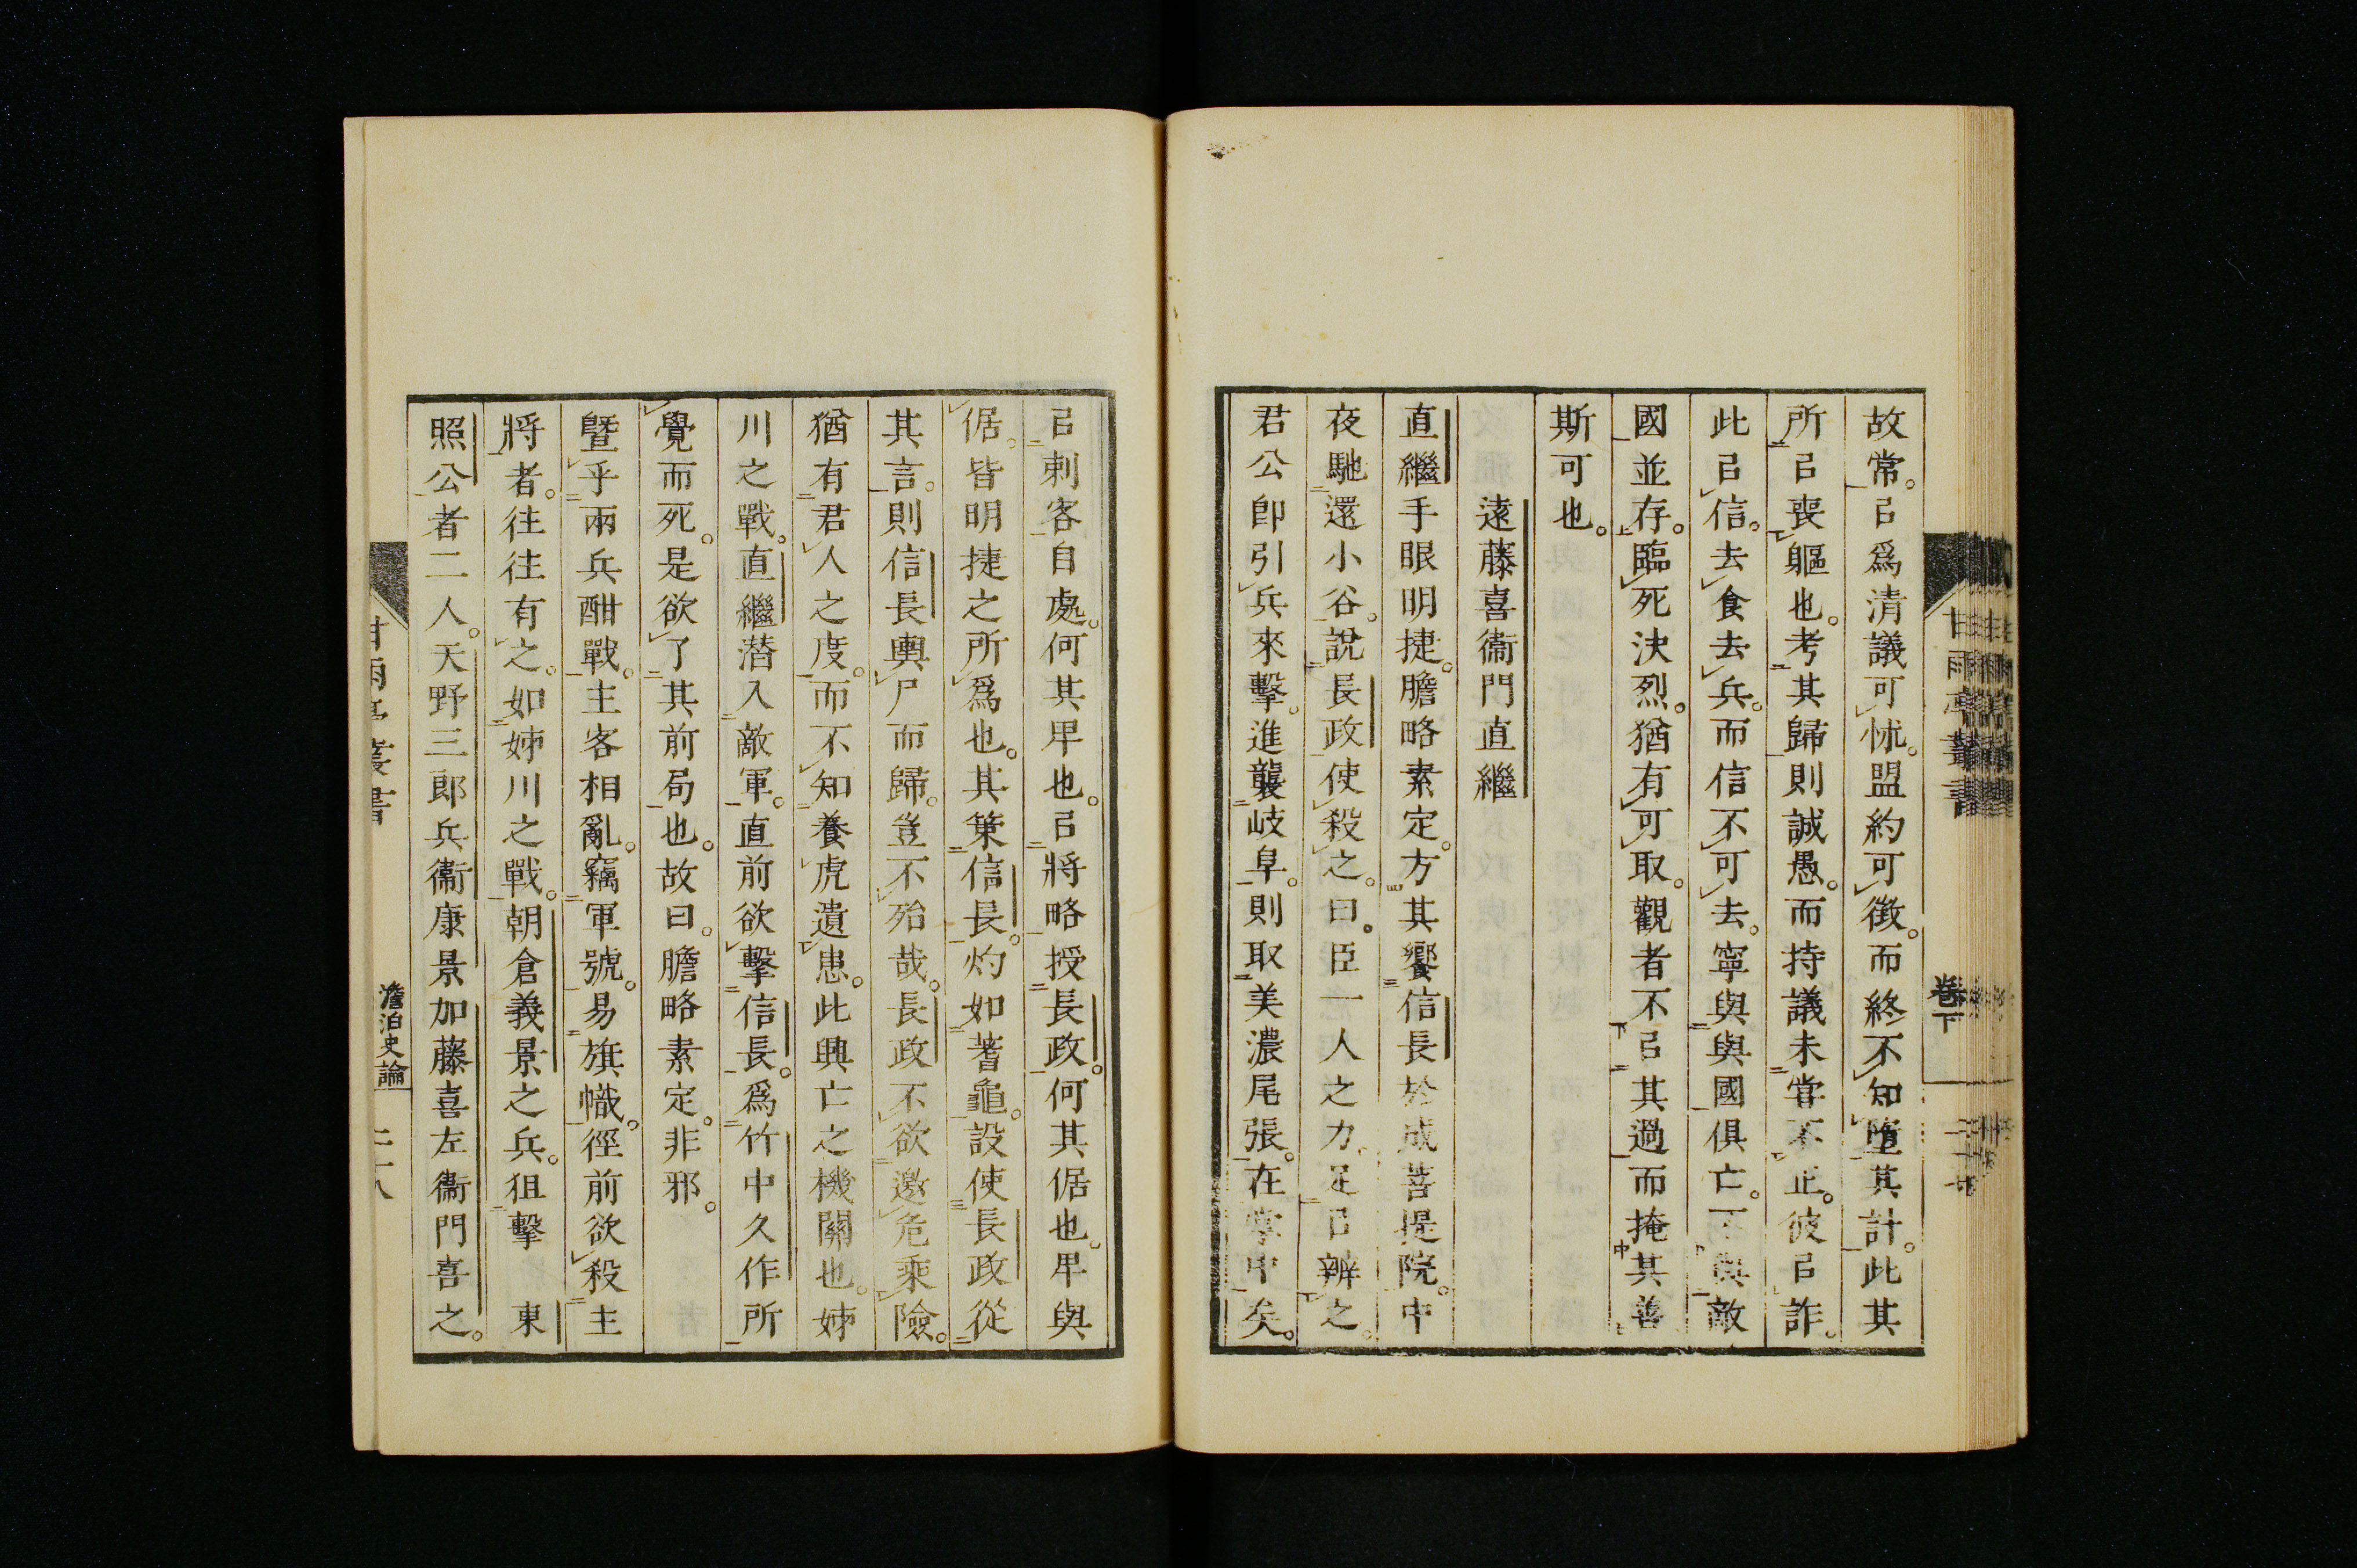 故常。㠯爲清議可怵。盟約可徵。而終不知墮其計。此其
所㠯喪軀也。考其歸則誠愚。而持議未嘗不正。彼㠯詐。
此㠯信。去食去兵。而信不可去。寧與與國俱亡。不與敵
國並存。臨死決烈。猶有可取。觀者不㠯其過而掩其善
斯可也。
遠藤喜衞門直繼
直繼手眼明捷。膽略素定。方其饗信長於成菩提院。中
夜馳還小谷。說長政使殺之。曰。臣一人之力足㠯辨之。
君公卽引兵來擊。進襲岐阜。則取美濃尾張。在掌中矣。
㠯刺客自處。何其卑也。㠯將略授長政。何其倨也。卑與
倨。皆明捷之所爲也。其策信長。灼如蓍龜。設使長政從
其言。則信長輿尸而歸。豈不殆哉。長政不欲邀危乘險。
猶有君人之度。而不知養虎遺患。此興亡之機關也。姊
川之戰。直繼潛入敵軍。直前欲擊信長。爲竹中久作所
覺而死。是欲了其前局也。故曰。膽略素定。非邪。
曁乎兩兵酣戰。主客相亂。竊軍號。易旗幟。徑前欲殺主
將者。往往有之。如姊川之戰。朝倉義景之兵。狙擊 東
照公者二人。天野三郎兵衞康景加藤喜左衞門喜之。
甘雨亭叢書
卷下
甘雨亭叢書
澹泊史論
二十八